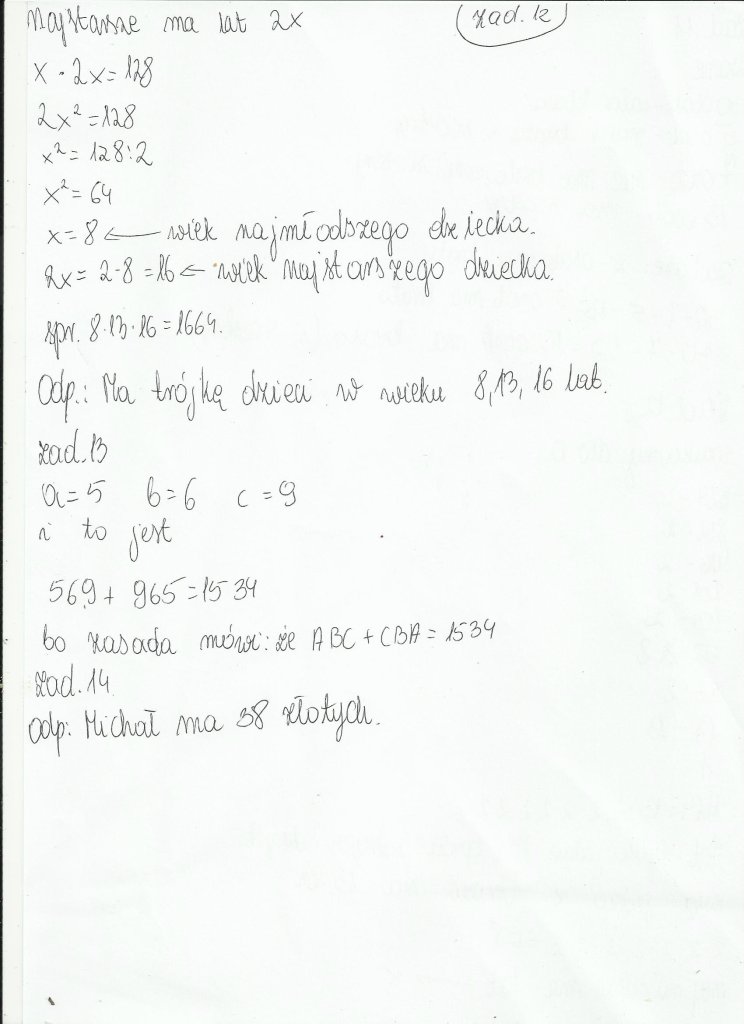 Najstarsze ma lat 2x
zad. 12
x · 2x = 128
2x² = 128
x² = 128:2
x² = 64
x = 8 ← wiek najmłodszego dziecka.
2x = 2·8 = 16 ← wiek najstarszego dziecka.
spr. 8·13·16 = 1664.
Odp.: Ma trójkę dzieci w wieku 8, 13, 16 lat.
zad. 13
a = 5 b = 6 c = 9
i to jest
569 + 965 = 1534
bo zasada mówi: że ABC + CBA = 1534
zad. 14
odp: Michał ma 38 złotych.